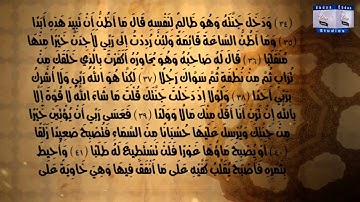 Studies
(٣٤) وَدَخَلَ جَنَّتَهُ وَهُوَ ظَالِمٌ لِّنَفْسِهِ قَالَ مَا أَظُنُّ أَن تَبِيدَ هَذِهِ أَبَدًا
(٣٥) وَمَا أَظُنُّ السَّاعَةَ قَائِمَةً وَلَئِن رُّدِدتُّ إِلَى رَبِّي لَأَجِدَنَّ خَيْرًا مِّنْهَا
مُنقَلَبًا (٣٦) قَالَ لَهُ صَاحِبُهُ وَهُوَ يُحَاوِرُهُ أَكَفَرْتَ بِالَّذِي خَلَقَكَ مِن
تُرَابٍ ثُمَّ مِن نُّطْفَةٍ ثُمَّ سَوَّاكَ رَجُلًا (٣٧) لَّكِنَّا هُوَ اللَّهُ رَبِّي وَلَا أُشْرِكُ
بِرَبِّي أَحَدًا (٣٨) وَلَوْلَا إِذْ دَخَلْتَ جَنَّتَكَ قُلْتَ مَا شَاءَ اللَّهُ لَا قُوَّةَ إِلَّا
بِاللَّهِ إِن تَرَنِ أَنَا أَقَلَّ مِنكَ مَالًا وَوَلَدًا (٣٩) فَعَسَى رَبِّي أَن يُؤْتِيَنِ خَيْرًا
مِّن جَنَّتِكَ وَيُرْسِلَ عَلَيْهَا حُسْبَانًا مِّنَ السَّمَاءِ فَتُصْبِحَ صَعِيدًا زَلَقًا
(٤٠) أَوْ يُصْبِحَ مَاؤُهَا غَوْرًا فَلَن تَسْتَطِيعَ لَهُ طَلَبًا (٤١) وَأُحِيطَ
بِثَمَرِهِ فَأَصْبَحَ يُقَلِّبُ كَفَّيْهِ عَلَى مَا أَنفَقَ فِيهَا وَهِيَ خَاوِيَةٌ عَلَى